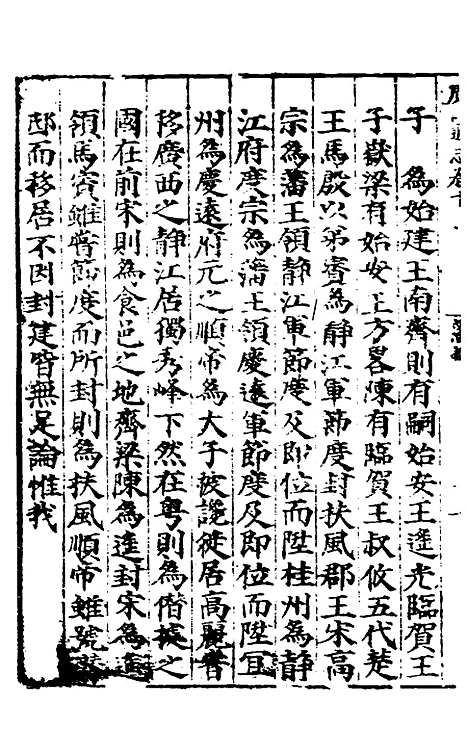 子　為始建王南齊則有嗣始安王遥光臨賀王
子嶽梁有始安王方畧陳有臨賀王叔攸五代楚
王馬殷以弟賓為靜江軍節度封扶風郡王宋高
宗為藩王領靜江軍節度及即位而陞桂州為靜
江府度宗為藩王領慶遠軍節度及即位而陞宜
州為慶遠府元之順帝為太子被讒徙居高麗
移廣西之靜江居獨秀峰下然在粤則為僭
國在前宋則為食邑之地齊梁陳為進封宋為
領馬賓雖嘗節度而所封則為扶風順帝雖號
邸而移居不因封建皆無足論惟我